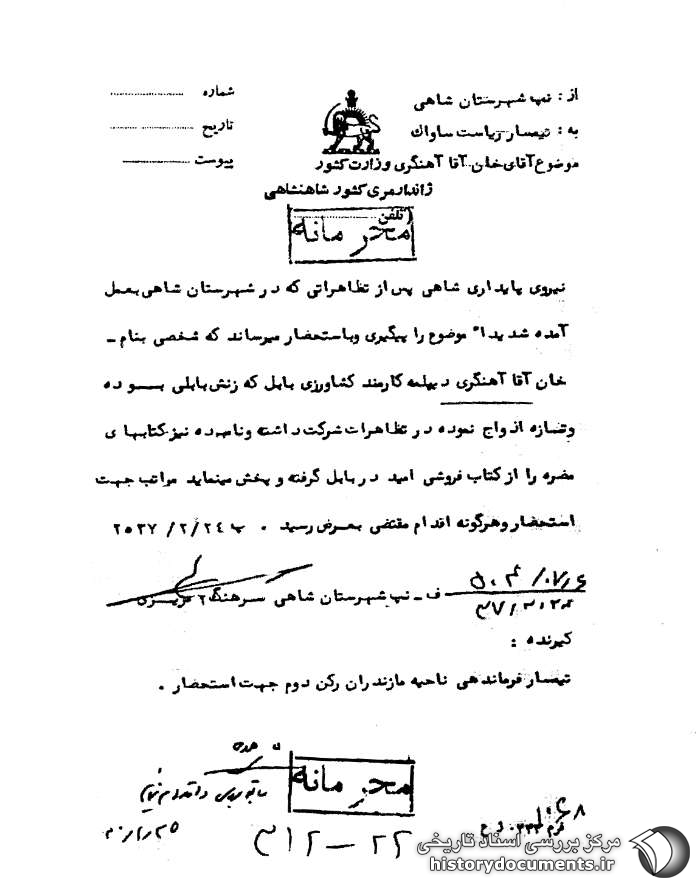 از : نپ شهرستان شاهی
به : تیمسار ریاست ساواک
موضوع آقای خان آقا آهنگری وزارت کشور
ژاندارمری کشور شاهنشاهی
شماره ....................
تاریخ ....................
پیوست ....................
تلفن ....................
محرمانه
نیروی پایداری شاهی پس از تظاهراتی که در شهرستان شاهی بعمل
آمده شدیدا" موضوع را پیگیری و باستحضار میرساند که شخصی بنام -
خان آقا آهنگری دیپلمه کارمند کشاورزی بابل که زنش بابلی بوده
وتازه ازدواج نموده در تظاهرات شرکت داشته و نامبرده نیز کتابهای
مضره را از کتاب فروشی امید در بابل گرفته و پخش مینماید مراتب جهت
استحضار و هرگونه اقدام مقتضی بعرض رسید . ب ۲۵۳۷/۲/۲۴
ف - نپ شهرستان شاهی سرهنگ ۲
گیرنده :
تیمسار فرماندهی ناحیه مازندران رکن دوم جهت استحضار .
محرمانه
۳۱۲-۲۲
مرکز بررسی اسناد تاریخی
historydocuments.ir